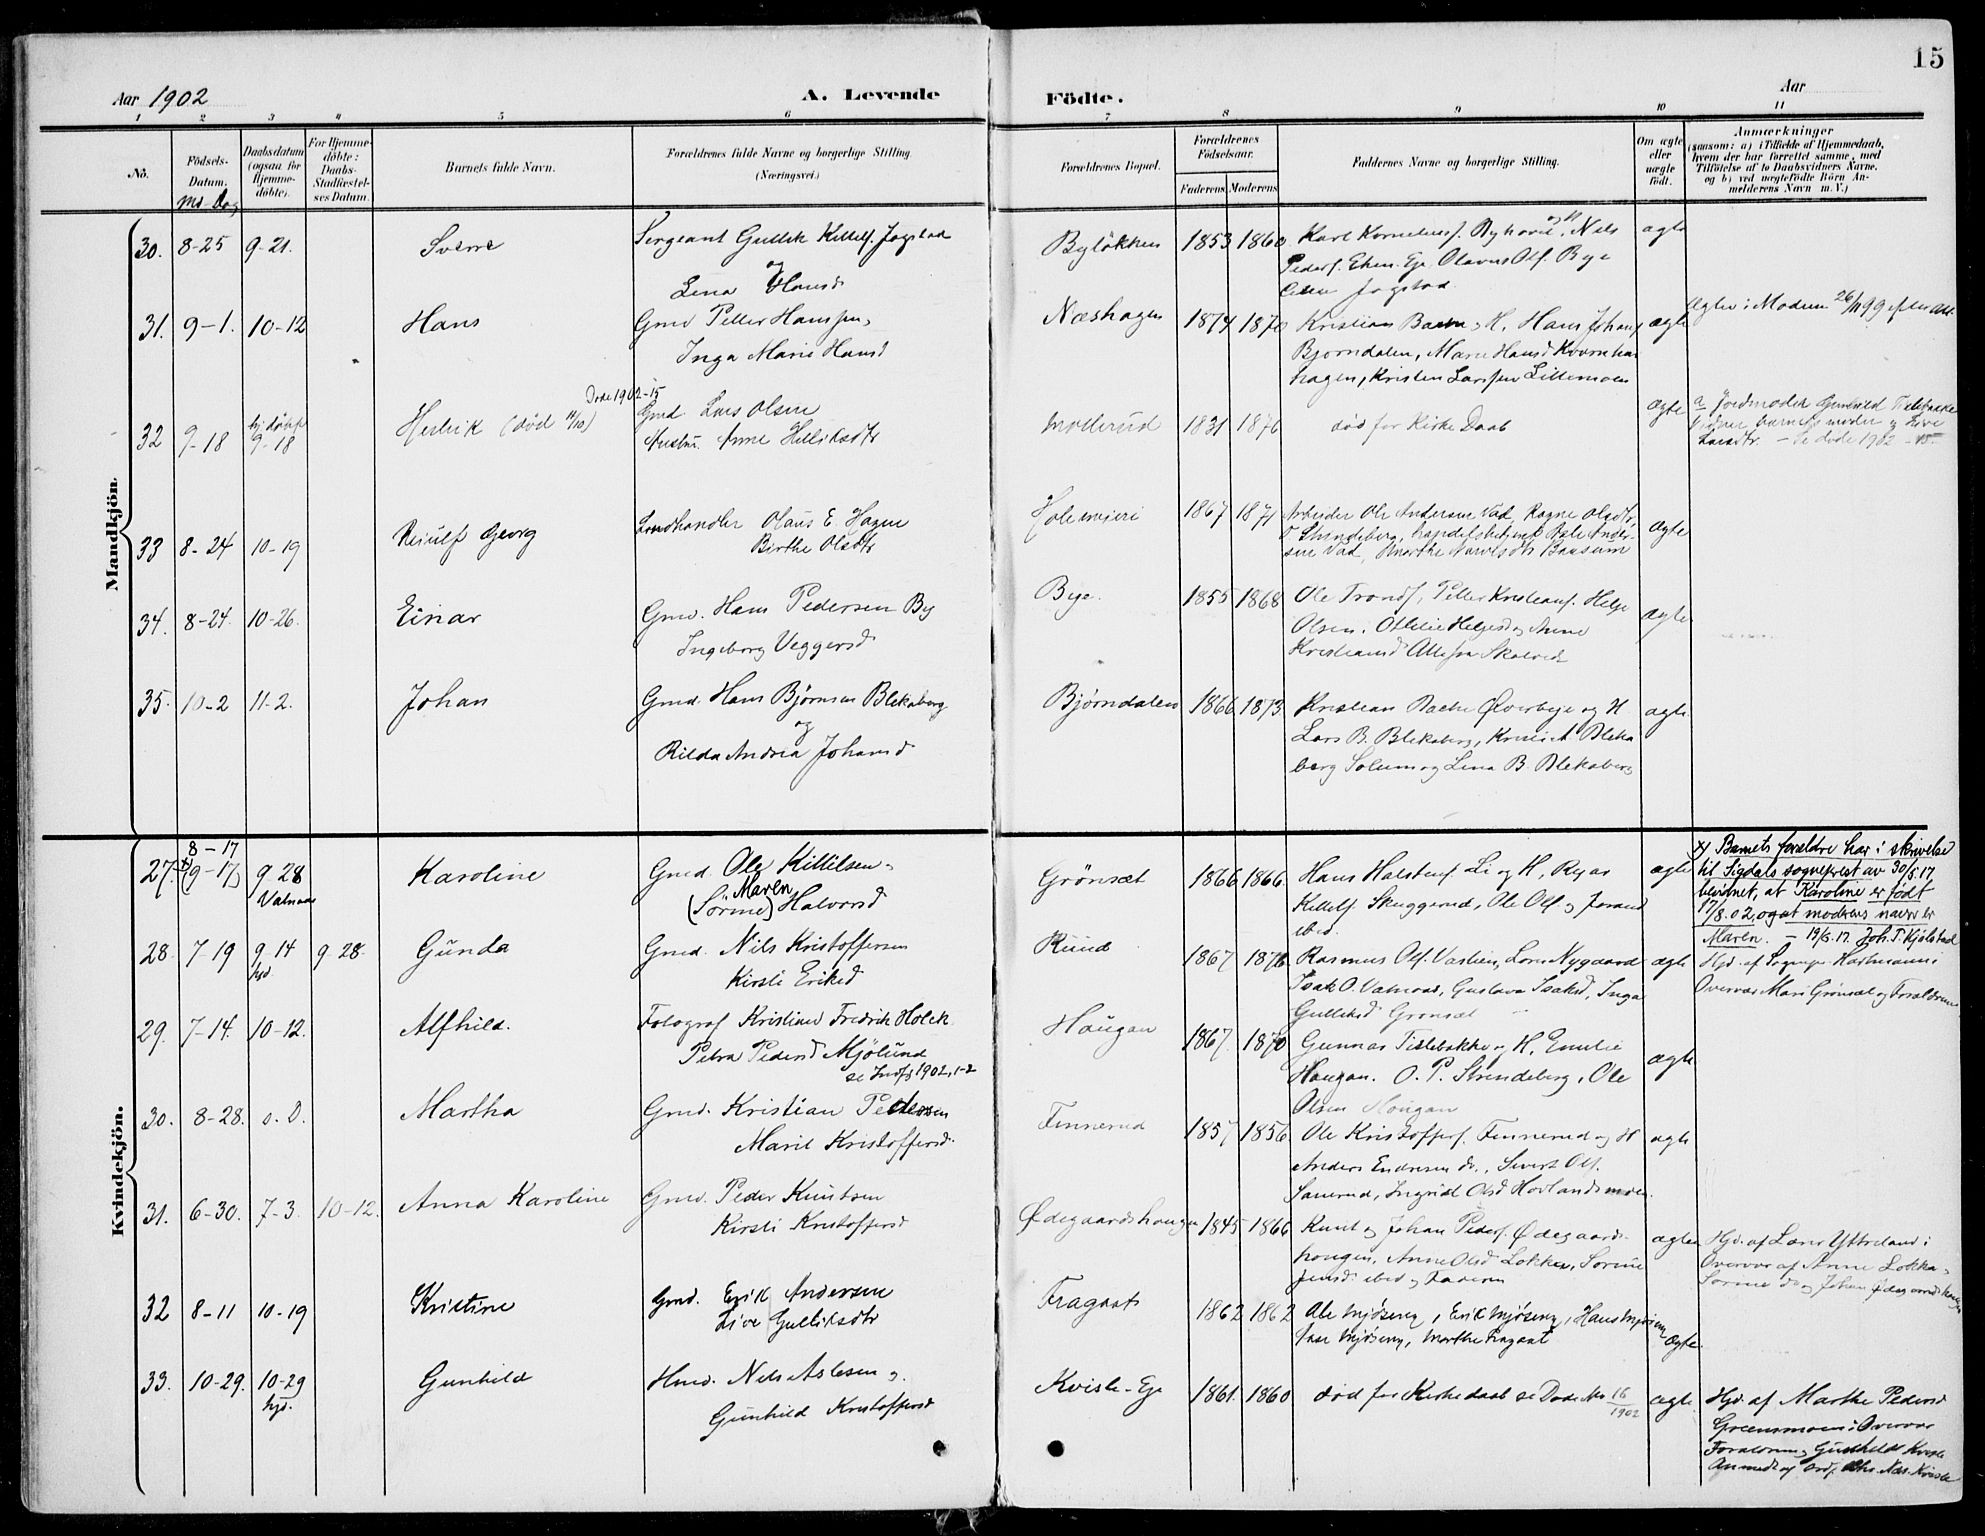 15
Aar 1902
A. Levende
Födte.
Aar
1 2 3 4 5 6 7 8 9 10 11
No.
Födsels-Datum.
Md. Dag
Daabsdatum (ogsaa for Hjemmedöbte).
For Hjemmedöbte: Daabs-Stadfæstelses Datum.
Barnets fulde Navn.
Forældrenes fulde Navne og borgerlige Stilling.
(Næringsvei.)
Forældrenes Bopæl.
Forældrenes Födselsaar.
Faderens Moderens
Faddernes Navne og borgerlige Stilling.
Om ægte eller uægte födt.
Anmærkninger
(saasom: a) i Tilfælde af Hjemmedaab, hvem der har forrettet samme, med Tilföielse af to Daabsvidners Navne. og b) ved uægtefödte Börn Anmelderens Navn m. V.)
Mandkjön.
30. 8-25 9-21. Sverre Sergeant Gullik Kittelf. Jogstad
og
Lina Hansd
Byløkken 1853 1860 Karl Kornelius. Byhovie og H. Nils
Pedersf. Ehen. Eje. Olavus Olf. Bye
Jogstad
ægte
31. 9-1. 10-12 Hans Gmd Petter Hanssen,
Inga Marie Hansd
Næshagen 1874 1870 Kristian Bache og H. Hans Johans
Bjorndalen, Maren Hansd Kværnhus
hagen, Kristen Larssen Littemoen
ægte
Ægtev. i Modum 26/11 99 efter Att.
32 9-18 hj. döpt 9-18 Helrik (död 11/10)
Döde 1902-15
Gmd. Lars Olsen
Hustru Anne Helliksdtr
Mollerud 1831 1876 död for Kirke Daab ægte
a Jordmoder Gunhild Tislebakke
Vidner barnets moder og Live
Larsdtr. - Se döde 1902 - 15
33 8-24 10-19 Reiulf Georg Landhandler Olaus E. Hagen
Birthe Olsdtr
Hole meieri 1867 1871 Arbeider Ole Andersen Vad Ragne Olsdtr,
O. Strindeberg, handelsbetjent Pale Ander-
sen Vad, Marthe Narvesdtr Baasum
ægte
34. 8-24. 10-26. Einar Gmd. Hans Pedersen By
Ingeborg Veggersd
Bye. 1855 1868 Ole Trondf, Petter Kristianf. Helge
Olsen. Othilie Helgesd og Anne
Kristiansd Alle fra Skalred
ægte
35. 10-2 11-2. Johan Gmd. Hans Bjørnsen Blekaberg
og
Rilda Andrea Johansd
Bjørndalen 1866 1873 Kristian Bache Øverbye og H
Lars B. Blekaberg, Kristi A. Bleka
berg Solum og Lina B. Blekaberg
ægte
Kvindekjön.
27. 8-17
x) (9-17) 9 28 Vatnaas Karoline Gmd. Ole Kittilsen
Maren
(Sörine) Halvorsd
Grönsæt 1866 1866 Hans Halstenf Li og H. Reyar
Kittelf. Skuggerud, Ole Olf. og Jorand
ibid.
ægte
x) Barnets foreldre har i skrivelse
til Sigdals sogneprest av 30/5.17,
bevidnet, at Karoline er født
17/8.02, og at moderens navn er
Maren. - 19/6.17. Joh. T. Kjølstad
28. 7-19 9-14 hjd 9 28. Gunda Gmd. Nils Kristoffersen
Kirsti Eriksd
Ruud 1867 1876 Rasmus Olf. Vastien, Lars Nygaard
Isak O. Vatnaas, Gustava Isaksd, Inga
Gulliksd Grønsæt
ægte
Hjd. af Sognepr. Hartmann i
Overvær Mari Grönsæt og Forældrene
29. 7-14. 10-12. Alfhild. Fotograf Kristian Fredrik Holck
Petra Pedersd Mjölund
se Indfl 1902, 1-2
Haugan 1867. 1870 Gunnar Tislebakke og H. Emilie
Haugan. O. P. Strindeberg, Ole
Olsen Haugan
ægte
30. 8-28. s. D. Martha Gmd. Kristian Pedersen
Marit Kristoffersd.
Finnerud 1857 1856 Ole Kristofferf. Finnerud og H
Anders Endresen do., Sivert Olf.
Sanerud, Ingrid Olsd Hovlandsmoen
ægte
31. 6-30. 7-3. 10-12. Anna Karoline Gmd. Peder Knutsen
Kirsti Kristoffersd
Ødegaardshougen 1845 1866 Knut og Johan Pedersf. Ødegaards-
hougen, Anne Olsd Løkken, Sorine
Jensd ibid og Faderen
ægte
Hjd. af Lærer Ytreland i
Overvær af Anne Løkka,
Sorine do og Johan Ødegaardshougen
32 8-11 10-19 Kristine Gmd. Erik Andersen
Live Gulliksdtr
Fragaat 1862 1862 Ole Mjøseng, Erik Mjøseng, Hans Mjøseng
Mjøseng, Marthe Fragaat
ægte
33. 10-29. 10-29 hjd. Gunhild Hmd. Nels Aslesen og
Gunhild Kristoffersd
Kvisle-Eje 1861. 1860 død før Kirkedaab se Døde No 16/1902 ægte
Hjd. af Marthe Pedersd
Greensmoen i Overvær
Forældrene, Gunhild Kvisle
Anmeldt af